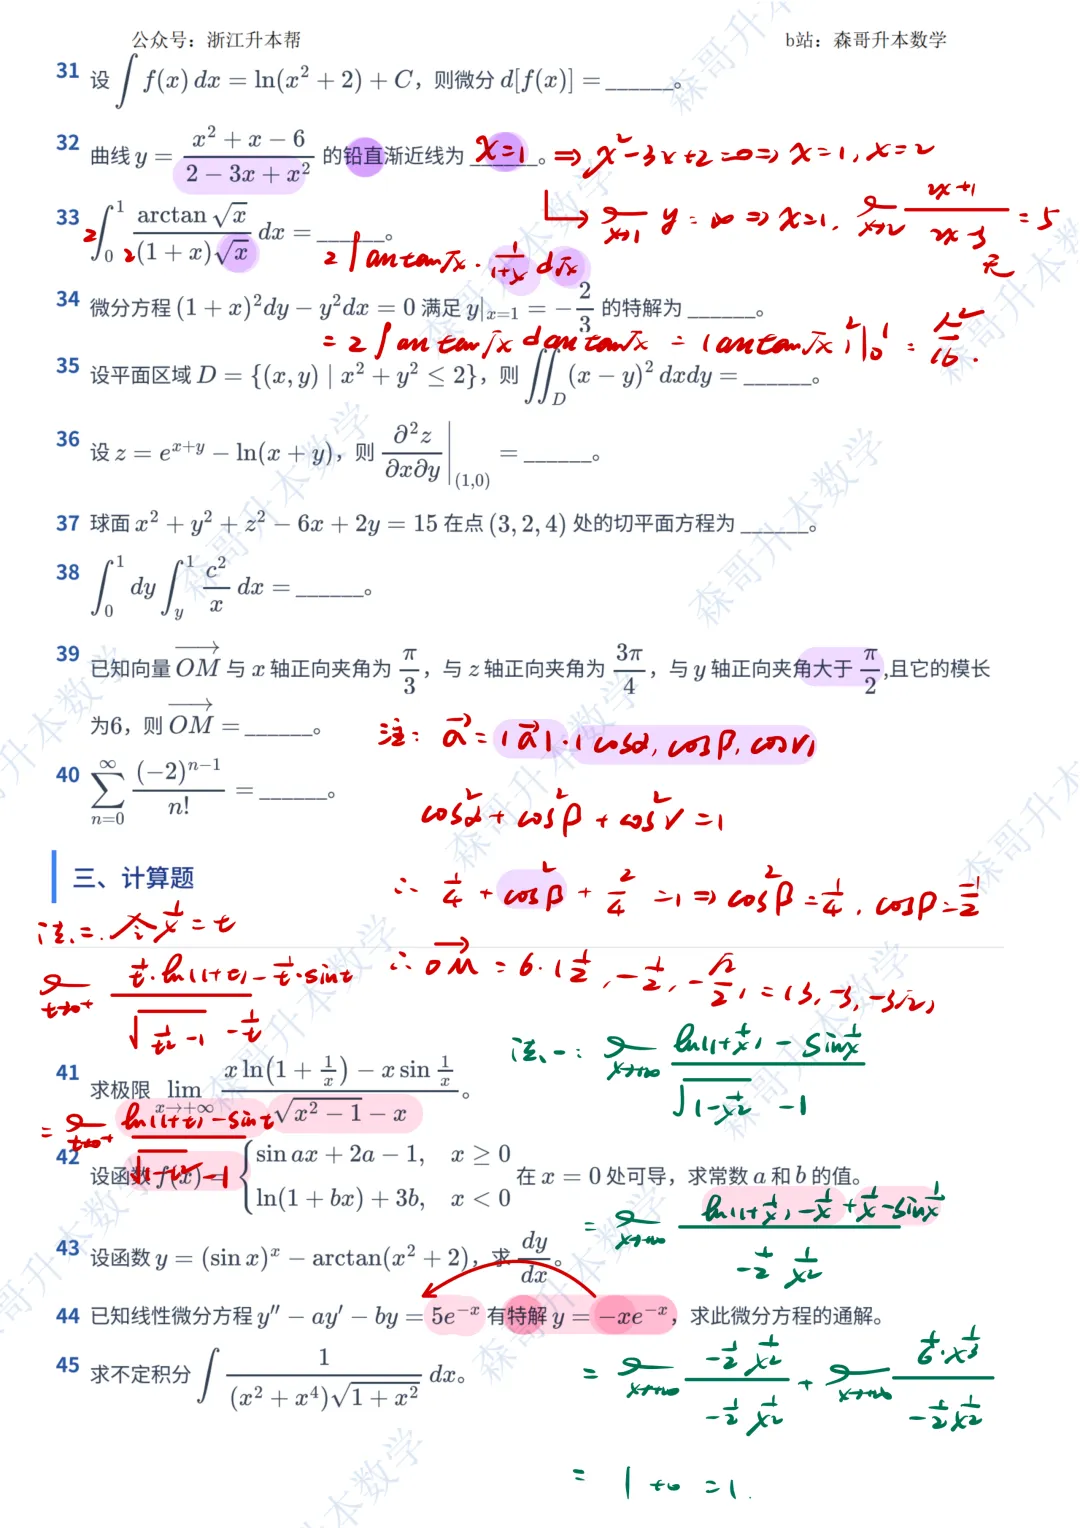 公众号：浙江升本帮
b站：森哥升本数学
31 设 ∫ f(x) dx = ln(x² + 2) + C，则微分 d[f(x)] = ______。
32 曲线 y = (x² + x − 6)/(2 − 3x + x²) 的铅直渐近线为 ______。 x=1 ⇒ x²−3x+2=0 ⇒ x=1, x=2
↳ lim_{x→1} y = ∞ ⇒ x=1, lim_{x→2} (2x+1)/(2x−3) = 5 无
33 ∫₀¹ arctan √x / ((1 + x)√x) dx = ______。
2∫ arctan√x · 1/(1+x) d√x
34 微分方程 (1 + x)²dy − y²dx = 0 满足 y|ₓ₌₁ = −2/3 的特解为 ______。
= 2∫ arctan√x d arctan√x = (arctan√x)²|₀¹ = π²/16.
35 设平面区域 D = {(x, y) | x² + y² ≤ 2}，则 ∬_D (x − y)² dxdy = ______。
36 设 z = e^{x+y} − ln(x + y)，则 ∂²z/∂x∂y |_(1,0) = ______。
37 球面 x² + y² + z² − 6x + 2y = 15 在点 (3, 2, 4) 处的切平面方程为 ______。
38 ∫₀¹ dy ∫_y¹ c²/x dx = ______。
39 已知向量 OM→ 与 x 轴正向夹角为 π/3，与 z 轴正向夹角为 3π/4，与 y 轴正向夹角大于 π/2,且它的模长
为6，则 OM→ = ______。
注: a→ = |a→|·(cosα, cosβ, cosγ)
40 ∑_{n=0}^{∞} (−2)^{n−1}/n! = ______。
cos²α + cos²β + cos²γ = 1
∴ 1/4 + cos²β + 2/4 = 1 ⇒ cos²β = 1/4, cosβ = −1/2
∴ OM→ = 6·(1/2, −1/2, −√2/2) = (3, −3, −3√2)
三、计算题
法二. 令 1/x = t
lim_{t→0⁺} (1/t·ln(1+t) − 1/t·sint)/(√(1/t²−1) − 1/t)
41 求极限 lim_{x→+∞} (x ln(1 + 1/x) − x sin 1/x)/(√(x² − 1) − x)。
= lim_{t→0⁺} (ln(1+t) − sint)/(√(1−t²) − 1)
法一: lim_{x→+∞} (ln(1+1/x) − sin1/x)/(√(1−1/x²) − 1)
42 设函数 f(x) = { sin ax + 2a − 1, x ≥ 0
ln(1 + bx) + 3b, x < 0 在 x = 0 处可导，求常数 a 和 b 的值。
= lim_{x→+∞} (ln(1+1/x) − 1/x + 1/x − sin1/x)/(−1/2 1/x²)
43 设函数 y = (sin x)ˣ − arctan(x² + 2)，求 dy/dx。
44 已知线性微分方程 y″ − ay′ − by = 5e⁻ˣ 有特解 y = −xe⁻ˣ，求此微分方程的通解。
45 求不定积分 ∫ 1/((x² + x⁴)√(1 + x²)) dx。
= lim_{x→+∞} (−1/2 1/x²)/(−1/2 1/x²) + lim_{x→+∞} (1/6·1/x³)/(−1/2 1/x²)
= 1 + 0 = 1.
森哥升本数学